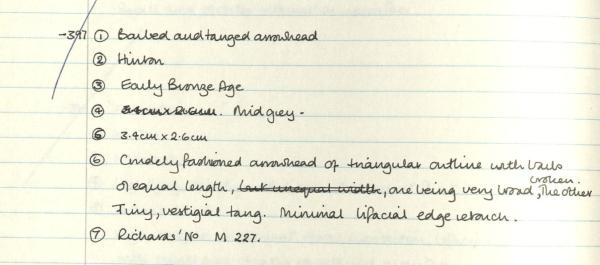 -397 ① Barbed and tanged arrowhead
② Hinton
③ Early Bronze Age
④ 3.4cm x 2.6cm. Mid grey.
⑤ 3.4cm x 2.6cm
⑥ Crudely fashioned arrowhead of triangular outline with barbs broken.
of equal length, but unequal width, one being very broad, the other
Tiny, vestigial tang. Minimal bifacial edge retouch.
⑦ Richards' No M 227.